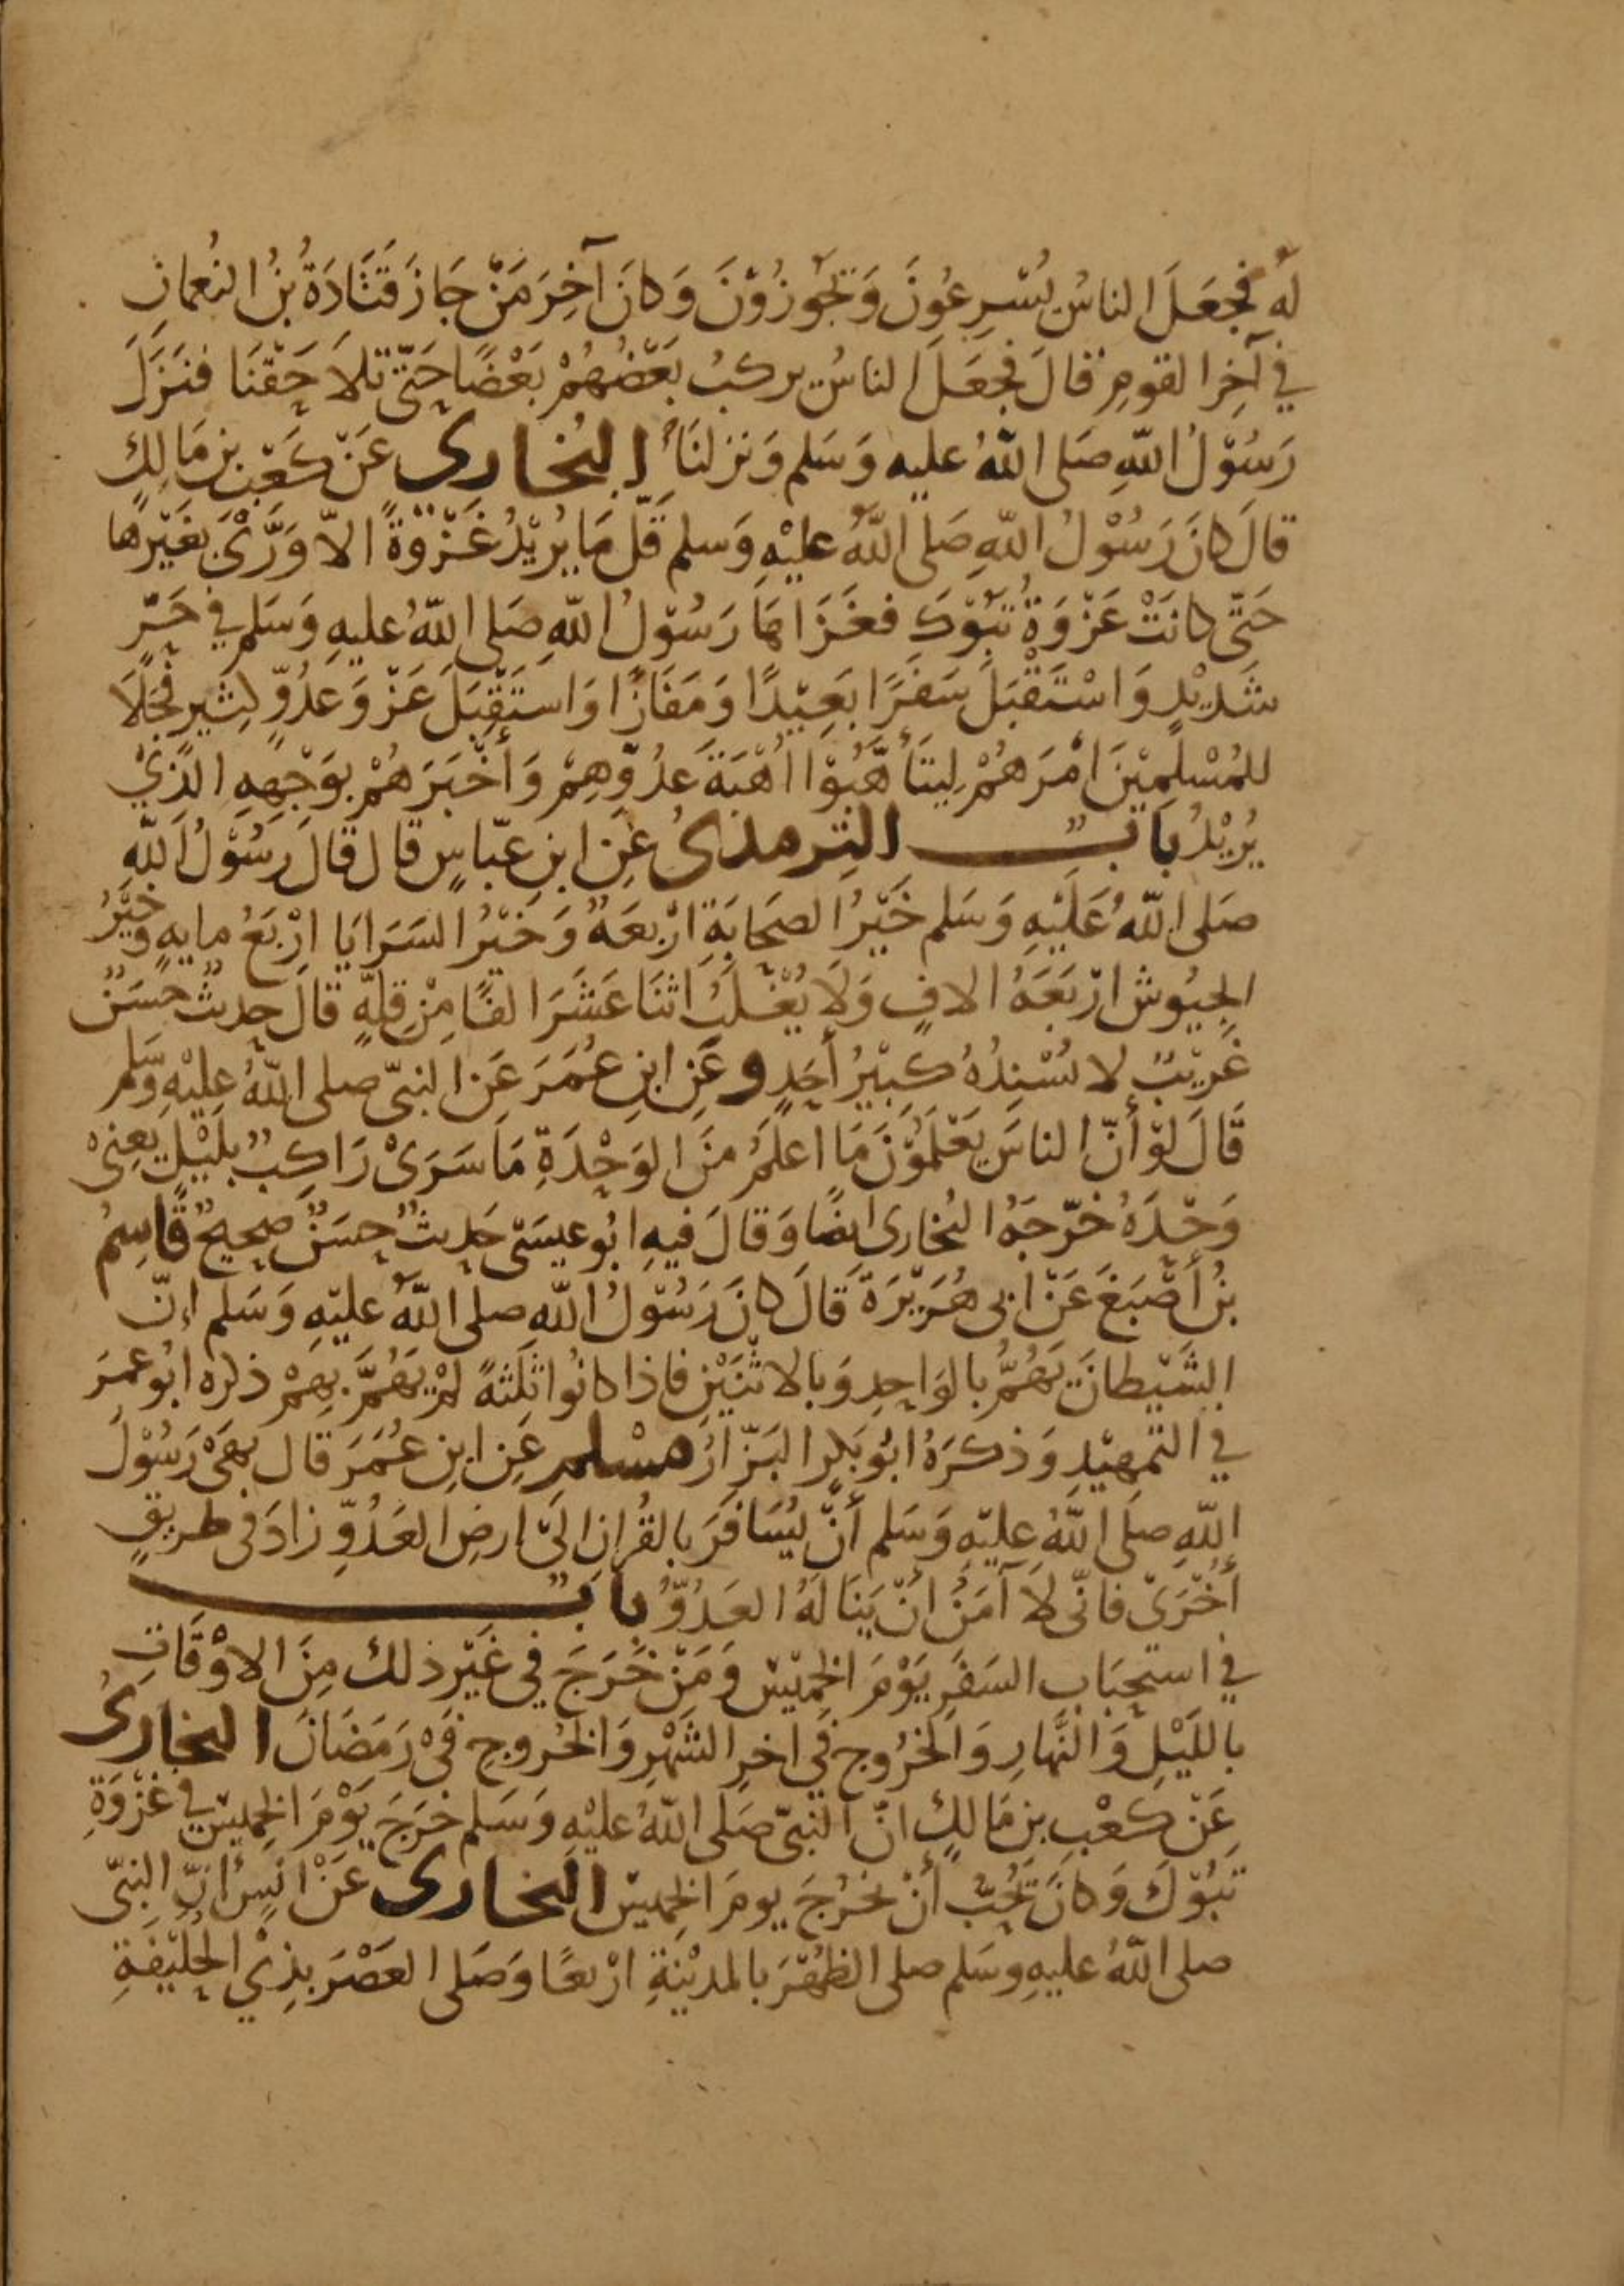 لَهُ فجَعَلَ الناسُ يُسْرِعُونَ وَيَجُوزُوْنَ وَكانَ آخِرَ مَنْ جَازَ قَتَادَةُ بْنُ النُعمانِ
في آخِرِ القومِ قالَ فجَعَلَ الناسُ يركبُ بَعْضُهُمْ بَعْضًا حَتّى تلاَحَقْنَا فنَزَلَ
رَسُوْلُ اللّهِ صَلى اللّهُ عليهِ وَسَلم وَنزلنَا البُخارى عَنْ كَعْبِ بنِ مَالِكٍ
قالَ كانَ رَسُوْلُ اللّهِ صَلى اللّهُ عليْهِ وَسلم قَلّ مَا يُرِيْدُ غَزْوَةً الاّ وَرَّىَ بغَيْرِها
حَتّى كانَتْ غَزْوَةُ تَبُوْكَ فغَزَاهَا رَسُوْلُ اللّهِ صَلى اللّهُ عليهِ وَسَلم في حَرّ
شَدِيْدٍ وَاسْتَقْبَلَ سَفَرًا بَعِيْدًا وَمَفَازًا وَاستَقْبَلَ غَزْوَ عَدُوٍّ كثيرٍ فجَلاَ
للمُسْلِمِيْنَ امْرَهُمْ لِيتَأَهَّبُوْا اُهْبَةَ عَدُوِّهِمْ وَأَخْبَرَهُمْ بوَجْهِهِ الَّذِيْ
يُرِيْدُ بابٌ الترمذىُ عَنِ ابنِ عبّاسٍ قال قالَ رَسُوْلُ اللّه
صَلى اللّهُ عَلَيْهِ وَسَلم خَيْرُ الصَحَابَةِ ارْبعَةٌ وَخَيْرُ السَرَايَا ارْبَعُ مايهٍ وخَيْرُ
الجيُوش ارْبَعَةُ الافٍ وَلاَ يُغْلَبُ اثنَا عَشَرَ الفًا مِنْ قِلةٍ قالَ حديثٌ حسَنٌ
غَرِيْبٌ لا يُسْنِدُهُ كَبِيْرُ أَحَدٍ وعَنِ ابنِ عُمَرَ عَنِ النبىّ صلى اللّهُ عليْهِ وَسَلم
قَالَ لوْ أَنّ الناسَ يَعْلَمُوْنَ مَا اعلَمُ منَ الوَحْدَةِ مَا سَرَىْ رَاكِبٌ بلَيْلٍ يعنىْ
وَحْدَهُ خَرّجَهُ البُخارى ايضًا وَقالَ فيهِ ابُو عيسَى حَديثٌ حسَنٌ صحيحٌ قاسِمُ
بنُ أَصْبَغَ عَنْ ابى هُرَيْرَةَ قَالَ كانَ رَسُوْلُ اللّهِ صلى اللّهُ عليْهِ وَسَلم انّ
الشَيْطانَ يَهُمُّ بالوَاحِدِ وَبالاثْنَيْنِ فاذا كانُوا ثلثةً لمْ يَهُمَّ بِهِمْ ذكره ابُو عمرَ
في التمهِيْدِ وَذكرَهُ ابُو بَكرٍ البَزّارُ مسْلم عَنِ ابنِ عُمَرَ قال نهَىْ رَسُوْلُ
اللّهِ صلَى اللّهُ عليْهِ وَسَلم أَنْ يُسَافَرَ بالقُرانِ الىَ ارضِ العَدُوِّ زادَ فى طريقٍ
أُخْرَىْ فانّى لاَ آمَنُ انْ يَنَالَهُ العَدُوُّ بابٌ
في استحبَابِ السَفَرِ يَوْمَ الخميْس وَمَنْ خَرَجَ في غَيْرِ ذلك مِنَ الاوْقَاتِ
بالليْلِ وَالنَّهارِ وَالخرُوج فِي اخرِ الشَهْرِ وَالخُروج فىْ رَمَضَانَ البخارىُ
عَنْ كعْبِ بنِ مَالكٍ انّ النبىّ صَلى اللّهُ عليْهِ وَسَلم خرَجَ يَوْمَ الخميْسِ في غَزْوَةِ
تَبُوْكَ وَكانَ يُحِبّ أَنْ يخرُجَ يومَ الخميْس البخارى عَنْ انَسٍ انّ النبىّ
صلى اللّهُ عليهِ وسَلم صلى الظهْرَ بالمدِيْنةِ ارْبعًا وَصَلى العَصْرَ بذِيْ الحُلَيْفَةِ